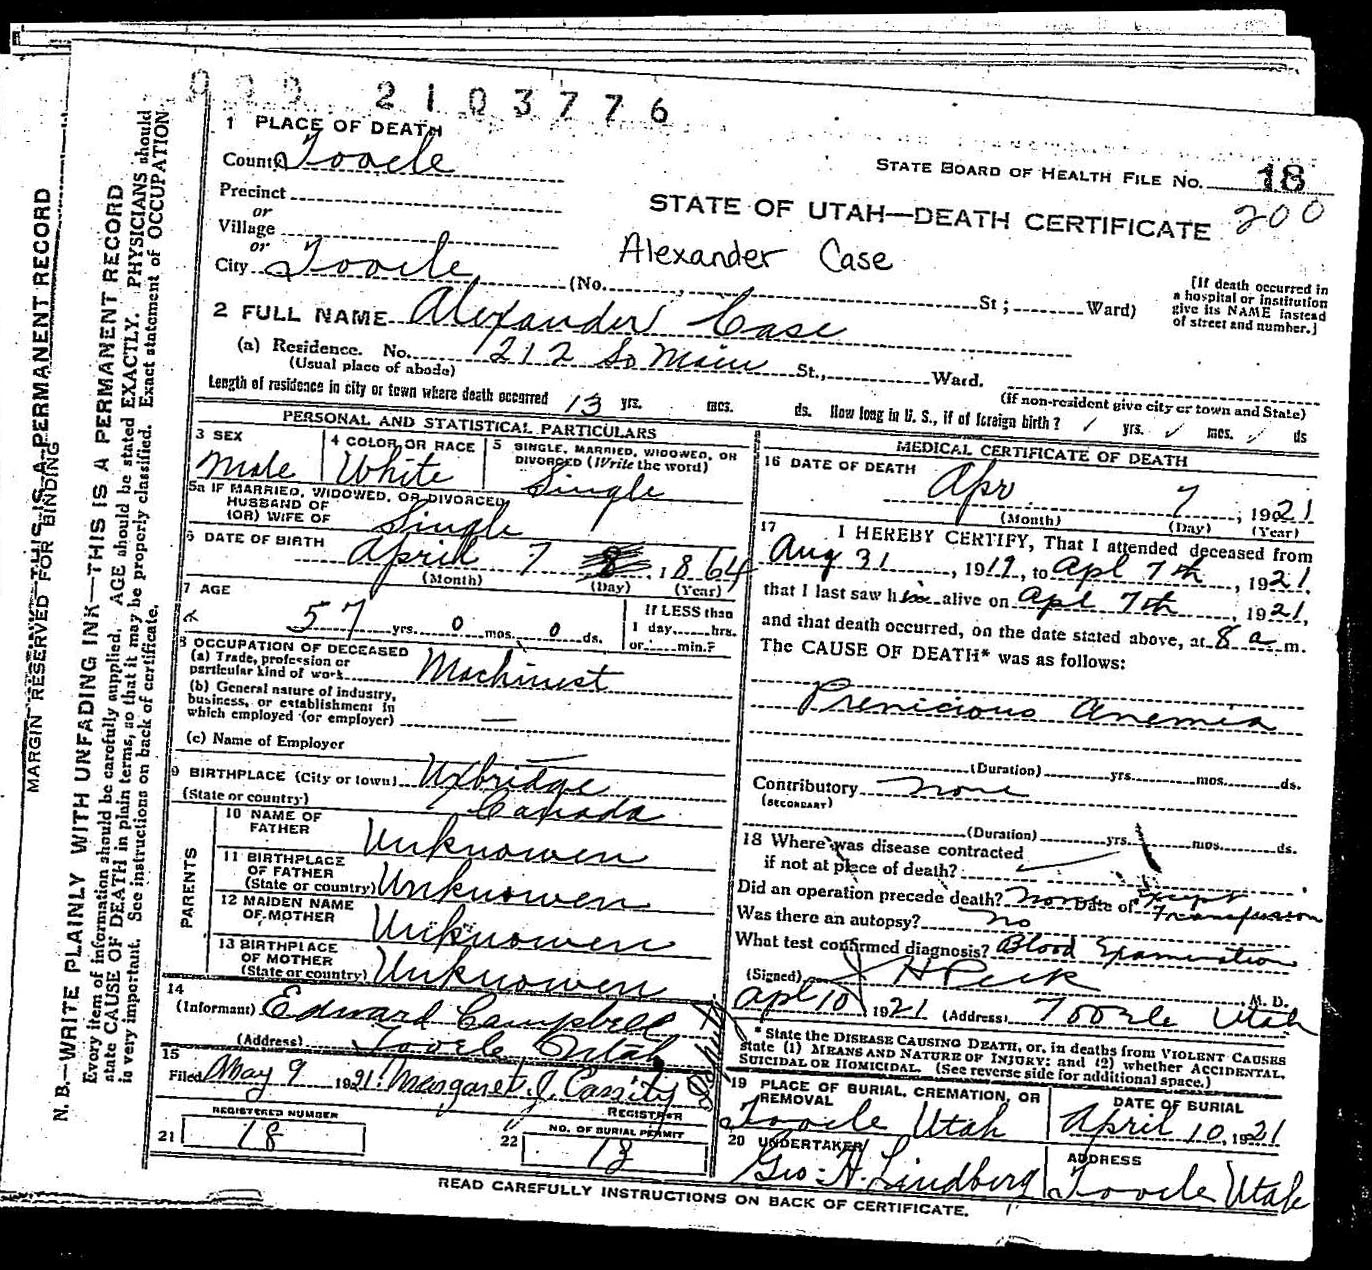 000 2103776
1 PLACE OF DEATH
County Tooele
STATE BOARD OF HEALTH FILE NO. 18
Precinct
or
Village
or
City Tooele
STATE OF UTAH—DEATH CERTIFICATE 200
Alexander Case
(No. , St ; Ward)
[If death occurred in
a hospital or institution
give its NAME instead
of street and number.]
2 FULL NAME Alexander Case
(a) Residence. No. 212 So Main St., Ward.
(Usual place of abode)
(if non-resident give city or town and State)
Length of residence in city or town where death occurred 13 yrs. mos. ds. How long in U. S., if of foreign birth? yrs. mos. ds
PERSONAL AND STATISTICAL PARTICULARS
3 SEX
Male
4 COLOR OR RACE
White
5 SINGLE, MARRIED, WIDOWED, OR
DIVORCED (Write the word)
Single
5a IF MARRIED, WIDOWED, OR DIVORCED
HUSBAND OF
(OR) WIFE OF Single
6 DATE OF BIRTH April 7 8 , 1864
(Month) (Day) (Year)
7 AGE
57 yrs. 0 mos. 0 ds.
If LESS than
1 day, hrs.
or min.?
8 OCCUPATION OF DECEASED
(a) Trade, profession or
particular kind of work Machinest
(b) General nature of industry,
business, or establishment in
which employed (or employer) —
(c) Name of Employer
9 BIRTHPLACE (City or town) Uxbridge
(State or country) Canada
PARENTS
10 NAME OF
FATHER Unknowen
11 BIRTHPLACE
OF FATHER
(State or country) Unknowen
12 MAIDEN NAME
OF MOTHER Unknowen
13 BIRTHPLACE
OF MOTHER
(State or country) Unknowen
14
(Informant) Edward Campbell
(Address) Tooele Utah
15
Filed May 9 1921 Margaret J. Cassity
REGISTRAR
Deputy
REGISTERED NUMBER
21 18
NO. OF BURIAL PERMIT
22 13
MEDICAL CERTIFICATE OF DEATH
16 DATE OF DEATH
Apr 7 , 1921
(Month) (Day) (Year)
17 I HEREBY CERTIFY, That I attended deceased from
Aug 31 , 1919, to Apl 7th , 1921.
that I last saw him alive on Apl 7th , 1921,
and that death occurred, on the date stated above, at 8 a m.
The CAUSE OF DEATH* was as follows:
Prenicious Anemia
(Duration) yrs. mos. ds.
Contributory none
(SECONDARY)
(Duration) yrs. mos. ds.
18 Where was disease contracted
if not at place of death?
Did an operation precede death? None Date of Except Transfusion
Was there an autopsy? no
What test confirmed diagnosis? Blood Examination
(Signed) J H Peck , M. D.
Apl 10 , 1921 (Address) Tooele Utah
* State the DISEASE CAUSING DEATH, or, in deaths from VIOLENT CAUSES
state (1) MEANS AND NATURE OF INJURY; and (2) whether ACCIDENTAL,
SUICIDAL OR HOMICIDAL. (See reverse side for additional space.)
19 PLACE OF BURIAL, CREMATION, OR
REMOVAL
Tooele Utah
DATE OF BURIAL
April 10, 1921
20 UNDERTAKER
Geo. H. Lindberg
ADDRESS
Tooele Utah
READ CAREFULLY INSTRUCTIONS ON BACK OF CERTIFICATE.
MARGIN RESERVED FOR BINDING
THIS IS A PERMANENT RECORD
N. B.—WRITE PLAINLY WITH UNFADING INK—THIS IS A PERMANENT RECORD
Every item of information should be carefully supplied. AGE should be stated EXACTLY. PHYSICIANS should
state CAUSE OF DEATH in plain terms, so that it may be properly classified. Exact statement of OCCUPATION
is very important. See instructions on back of certificate.